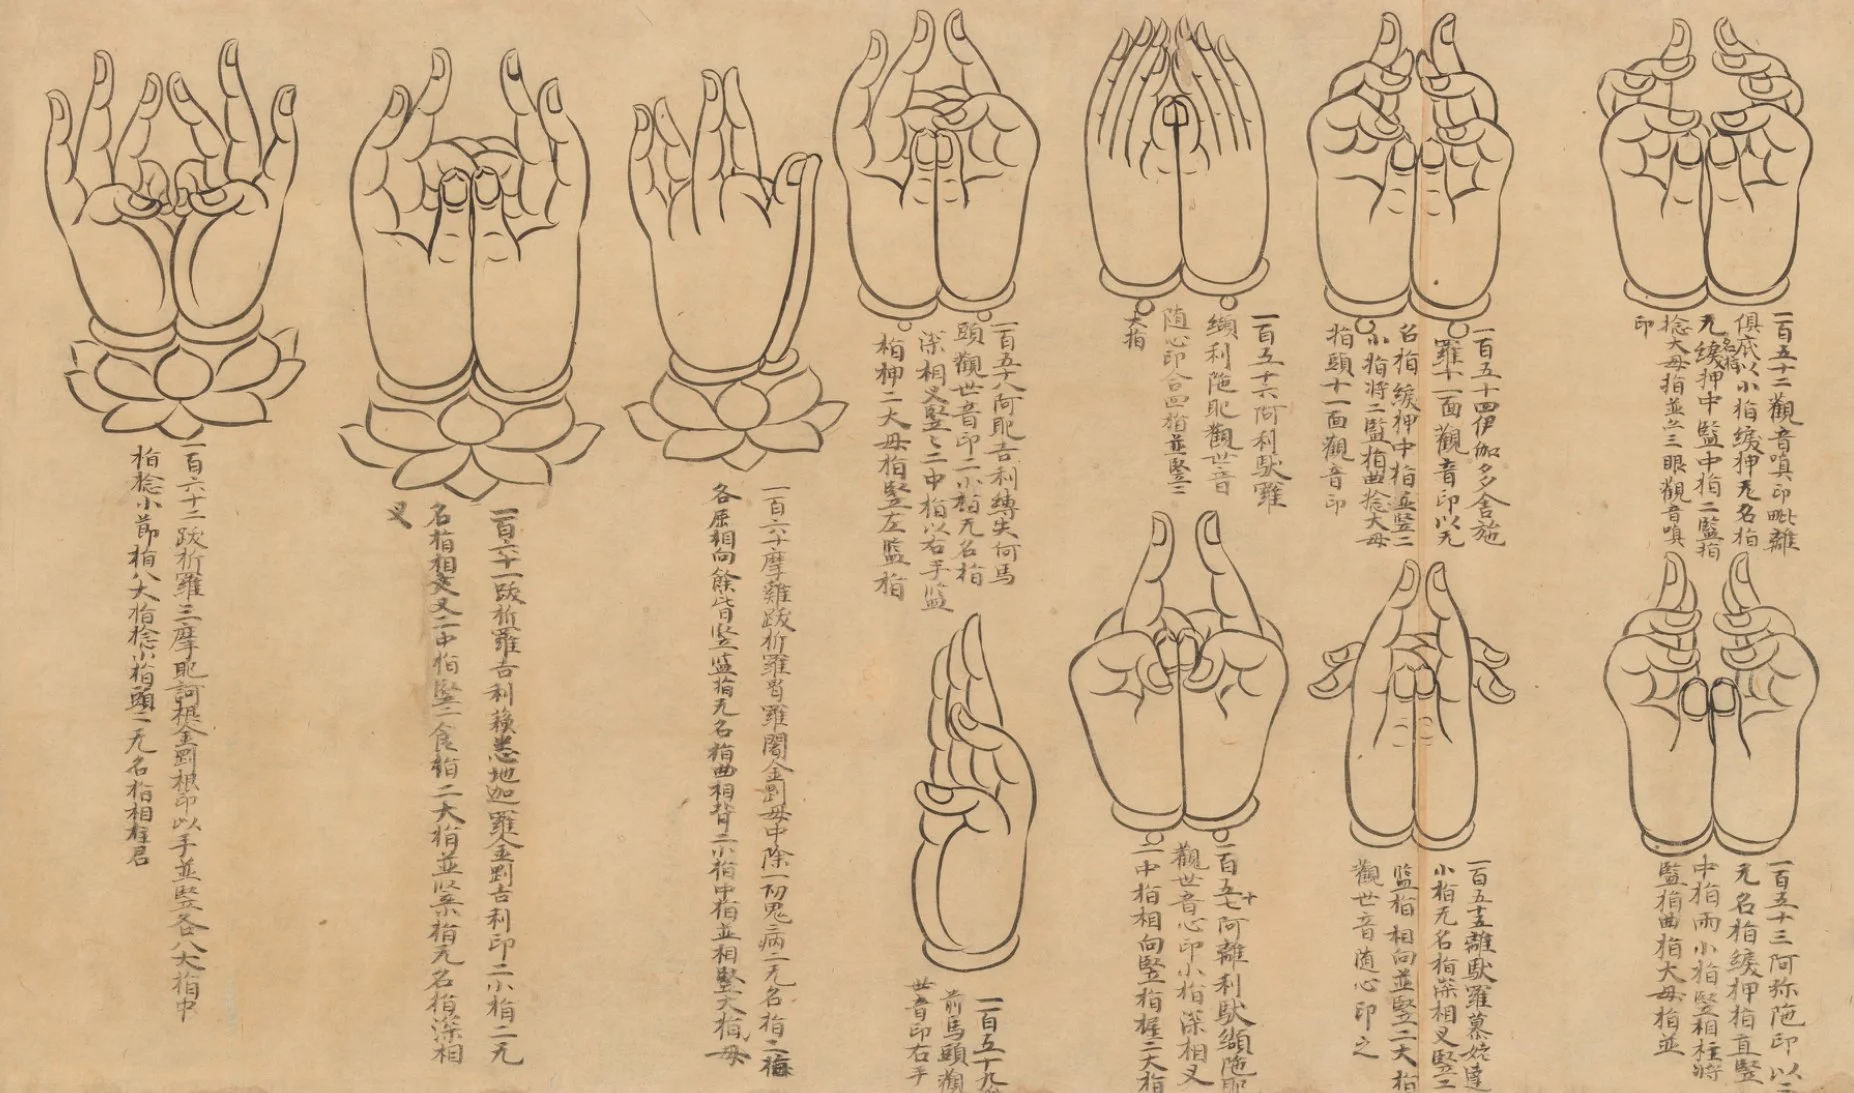 一百五十二觀音嗔印毗離
俱胝以小指綟押无名指
无名指綟押中監中指二監指
捻大母指並竺三眼觀音嗔
印
一百五十三阿弥陁印以二
无名指綟押指直竪
中指兩小指竪相柱將
監指曲指大母指並
一百五十四伊伽多舍施
羅十一面觀音印以无
名指綟押中指並竪二
小指將二監指曲捻大母
指頭十一面觀音印
一百五十五離馱羅慕姹達
小指无名指深相叉竪二
監指相向並竪二大指
觀世音随心印之
一百五十六阿利馱羅
纈利陁耶觀世音
随心印合四指並竪二
大指
一百五十七阿離利馱纈陁耶
觀世音心印小指深相叉
二中指相向竪指握二大指
一百五十八阿耶吉利縛失何馬
頭觀世音印二小指无名指
深相叉竪二中指以右手監
指押二大母指竪左監指
一百五十九
前馬頭觀
世音印右手
一百六十摩雞跋折羅 羅闍金剛母中除一切鬼病二无名指之
各屈相向餘皆竪監指无名指曲相背二小指中指並相竪大指母
一百六十一跋折羅吉利 悉地迦羅金剛吉利印二小指二无
名指相叉二中指竪二食指二大指並竪小指无名指深相
叉
一百六十二跋折羅三摩耶訶根金剛根印以手並竪各八大指中
指捻小節指八大指捻小指頭二无名指相柱君